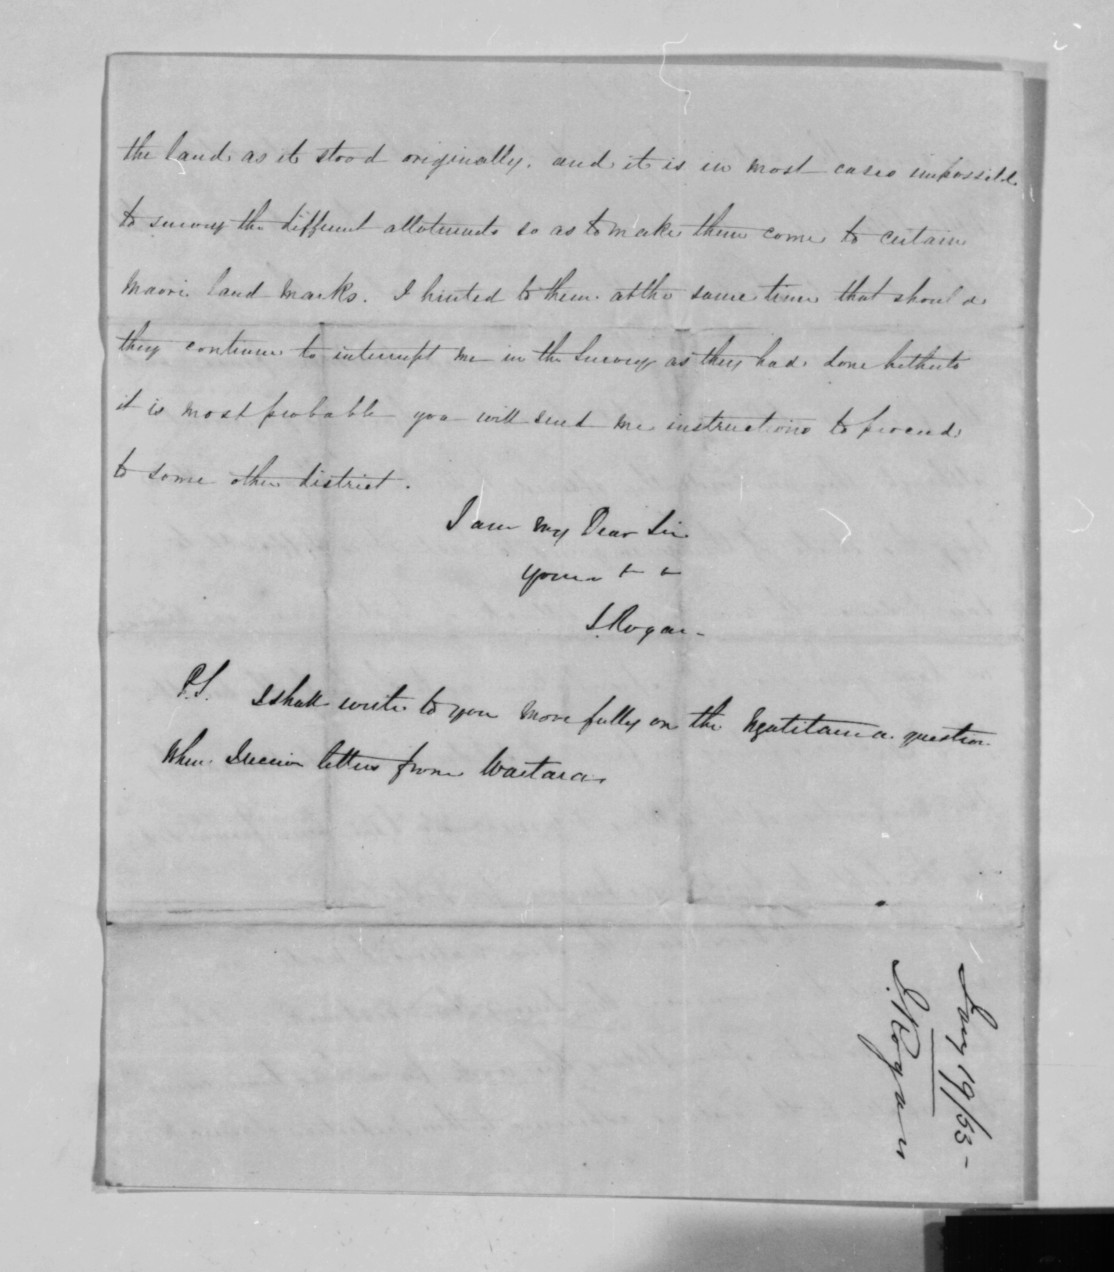 the land as it stood originally. and it is in most cases impossible
to survey the different allotments so as to make them come to certain
Maori land marks. I hinted to them at the same time that should
they continue to interrupt me in the Survey as they had done hitherto
it is most probable you will send me instructions to proceed
to some other district.
I am My Dear Sir
Yours
J. Rogan
P.S. I shall write to you more fully on the Ngatitama question
When I receive letters from Waitara.
Jany 19/53
J. Rogan